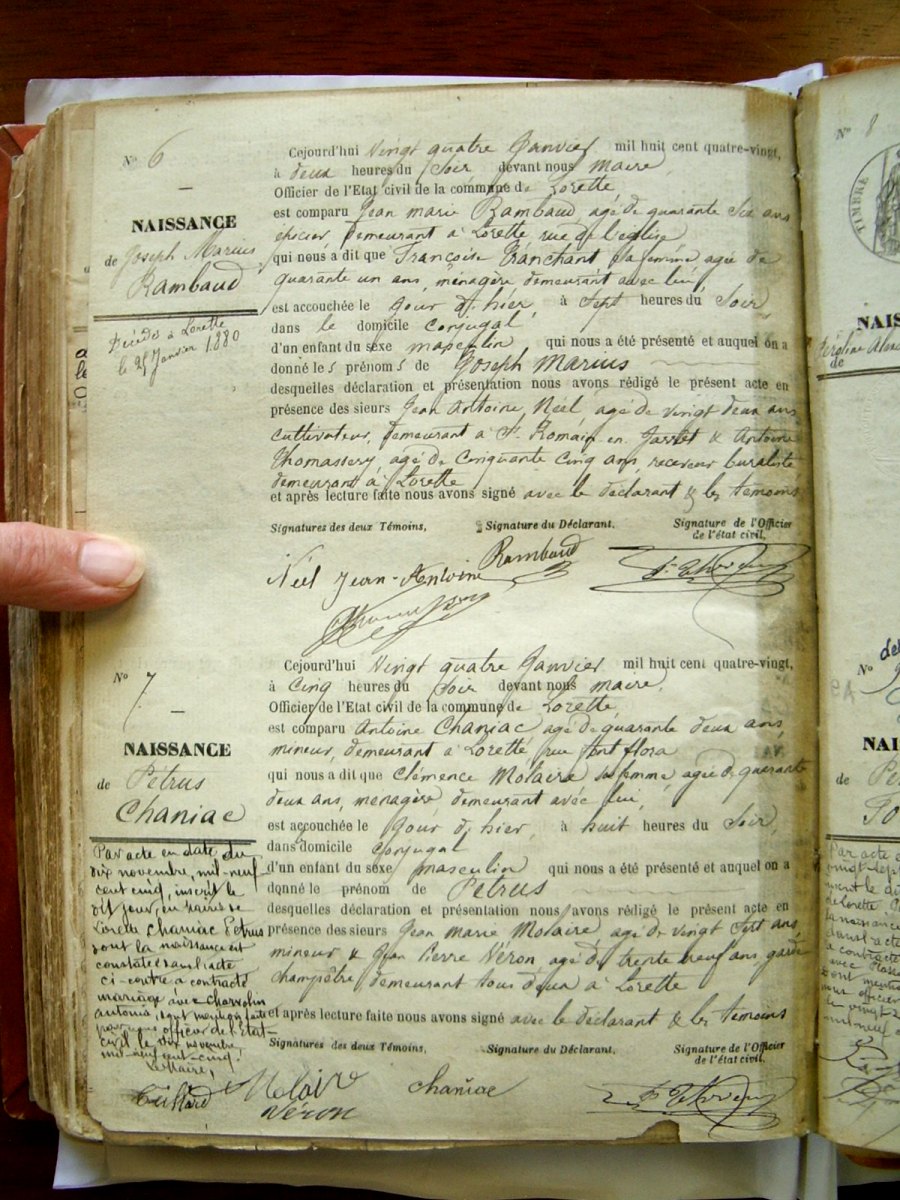 N° 6
NAISSANCE
de Joseph Marius
Rambaud
Décédé à Lorette
le 25 Janvier 1880
Cejourd'hui Vingt quatre Janvier mil huit cent quatre-vingt,
à deux heures du Soir devant nous Maire
Officier de l'Etat civil de la commune de Lorette
est comparu Jean marie Rambaud, agé de quarante Six ans
demeurant à Lorette rue de l'église
qui nous a dit que Françoise Tranchant Sa femme agée de
quarante un ans, ménagère demeurant avec lui,
est accouchée le Jour d'hier, à Sept heures du Soir,
dans le domicile conjugal
d'un enfant du sexe masculin qui nous a été présenté et auquel on a
donné les prénoms de Joseph Marius
desquelles déclaration et présentation nous avons rédigé le présent acte en
présence des sieurs Jean Antoine Néel, agé de vingt deux ans
Cultivateur, demeurant à St Romain en Jarret & Antoine
agé de Cinquante Cinq ans, receveur buraliste
demeurant à Lorette
et après lecture faite nous avons signé avec le déclarant & les témoins
Signatures des deux Témoins, Signature du Déclarant. Signature de l'Officier
de l'état civil,
Néel Jean-Antoine Rambaud
N° 7
NAISSANCE
de Pétrus
Chaniac
Par acte en date du
dix novembre, mil-neuf-
cent cinq, inscrit le
dit jour, en mairie de
Lorette Chaniac Pétrus
dont la naissance est
constatée dans l'acte
ci-contre a contracté
mariage avec Charvolin
Antonia, dont mention faite
par nous officier de l'état-
civil le dix novembre
mil-neuf-cent-cinq.
Le Maire,
Cejourd'hui Vingt quatre Janvier mil huit cent quatre-vingt,
à Cinq heures du Soir devant nous Maire,
Officier de l'Etat civil de la commune de Lorette
est comparu Antoine Chaniac agé de quarante deux ans,
mineur, demeurant à Lorette, rue font flora
qui nous a dit que Clémence Molaire sa femme, agée de quarante
deux ans, menagère demeurant avec lui,
est accouchée le Jour d'hier, à huit heures du Soir,
dans domicile conjugal
d'un enfant du sexe masculin qui nous a été présenté et auquel on a
donné le prénom de Pétrus
desquelles déclaration et présentation nous avons rédigé le présent acte en
présence des sieurs Jean marie Molaire agé de vingt Sept ans,
mineur & Jean Pierre Véron agé de trente neuf ans, garde
champêtre demeurant tous deux à Lorette
et après lecture faite nous avons signé avec le déclarant & les témoins
Signatures des deux Témoins, Signature du Déclarant. Signature de l'Officier
de l'état civil.
Molaire Chaniac
Véron
N° 8
TIMBRE
NAIS
de
N°
NAI
de Pé